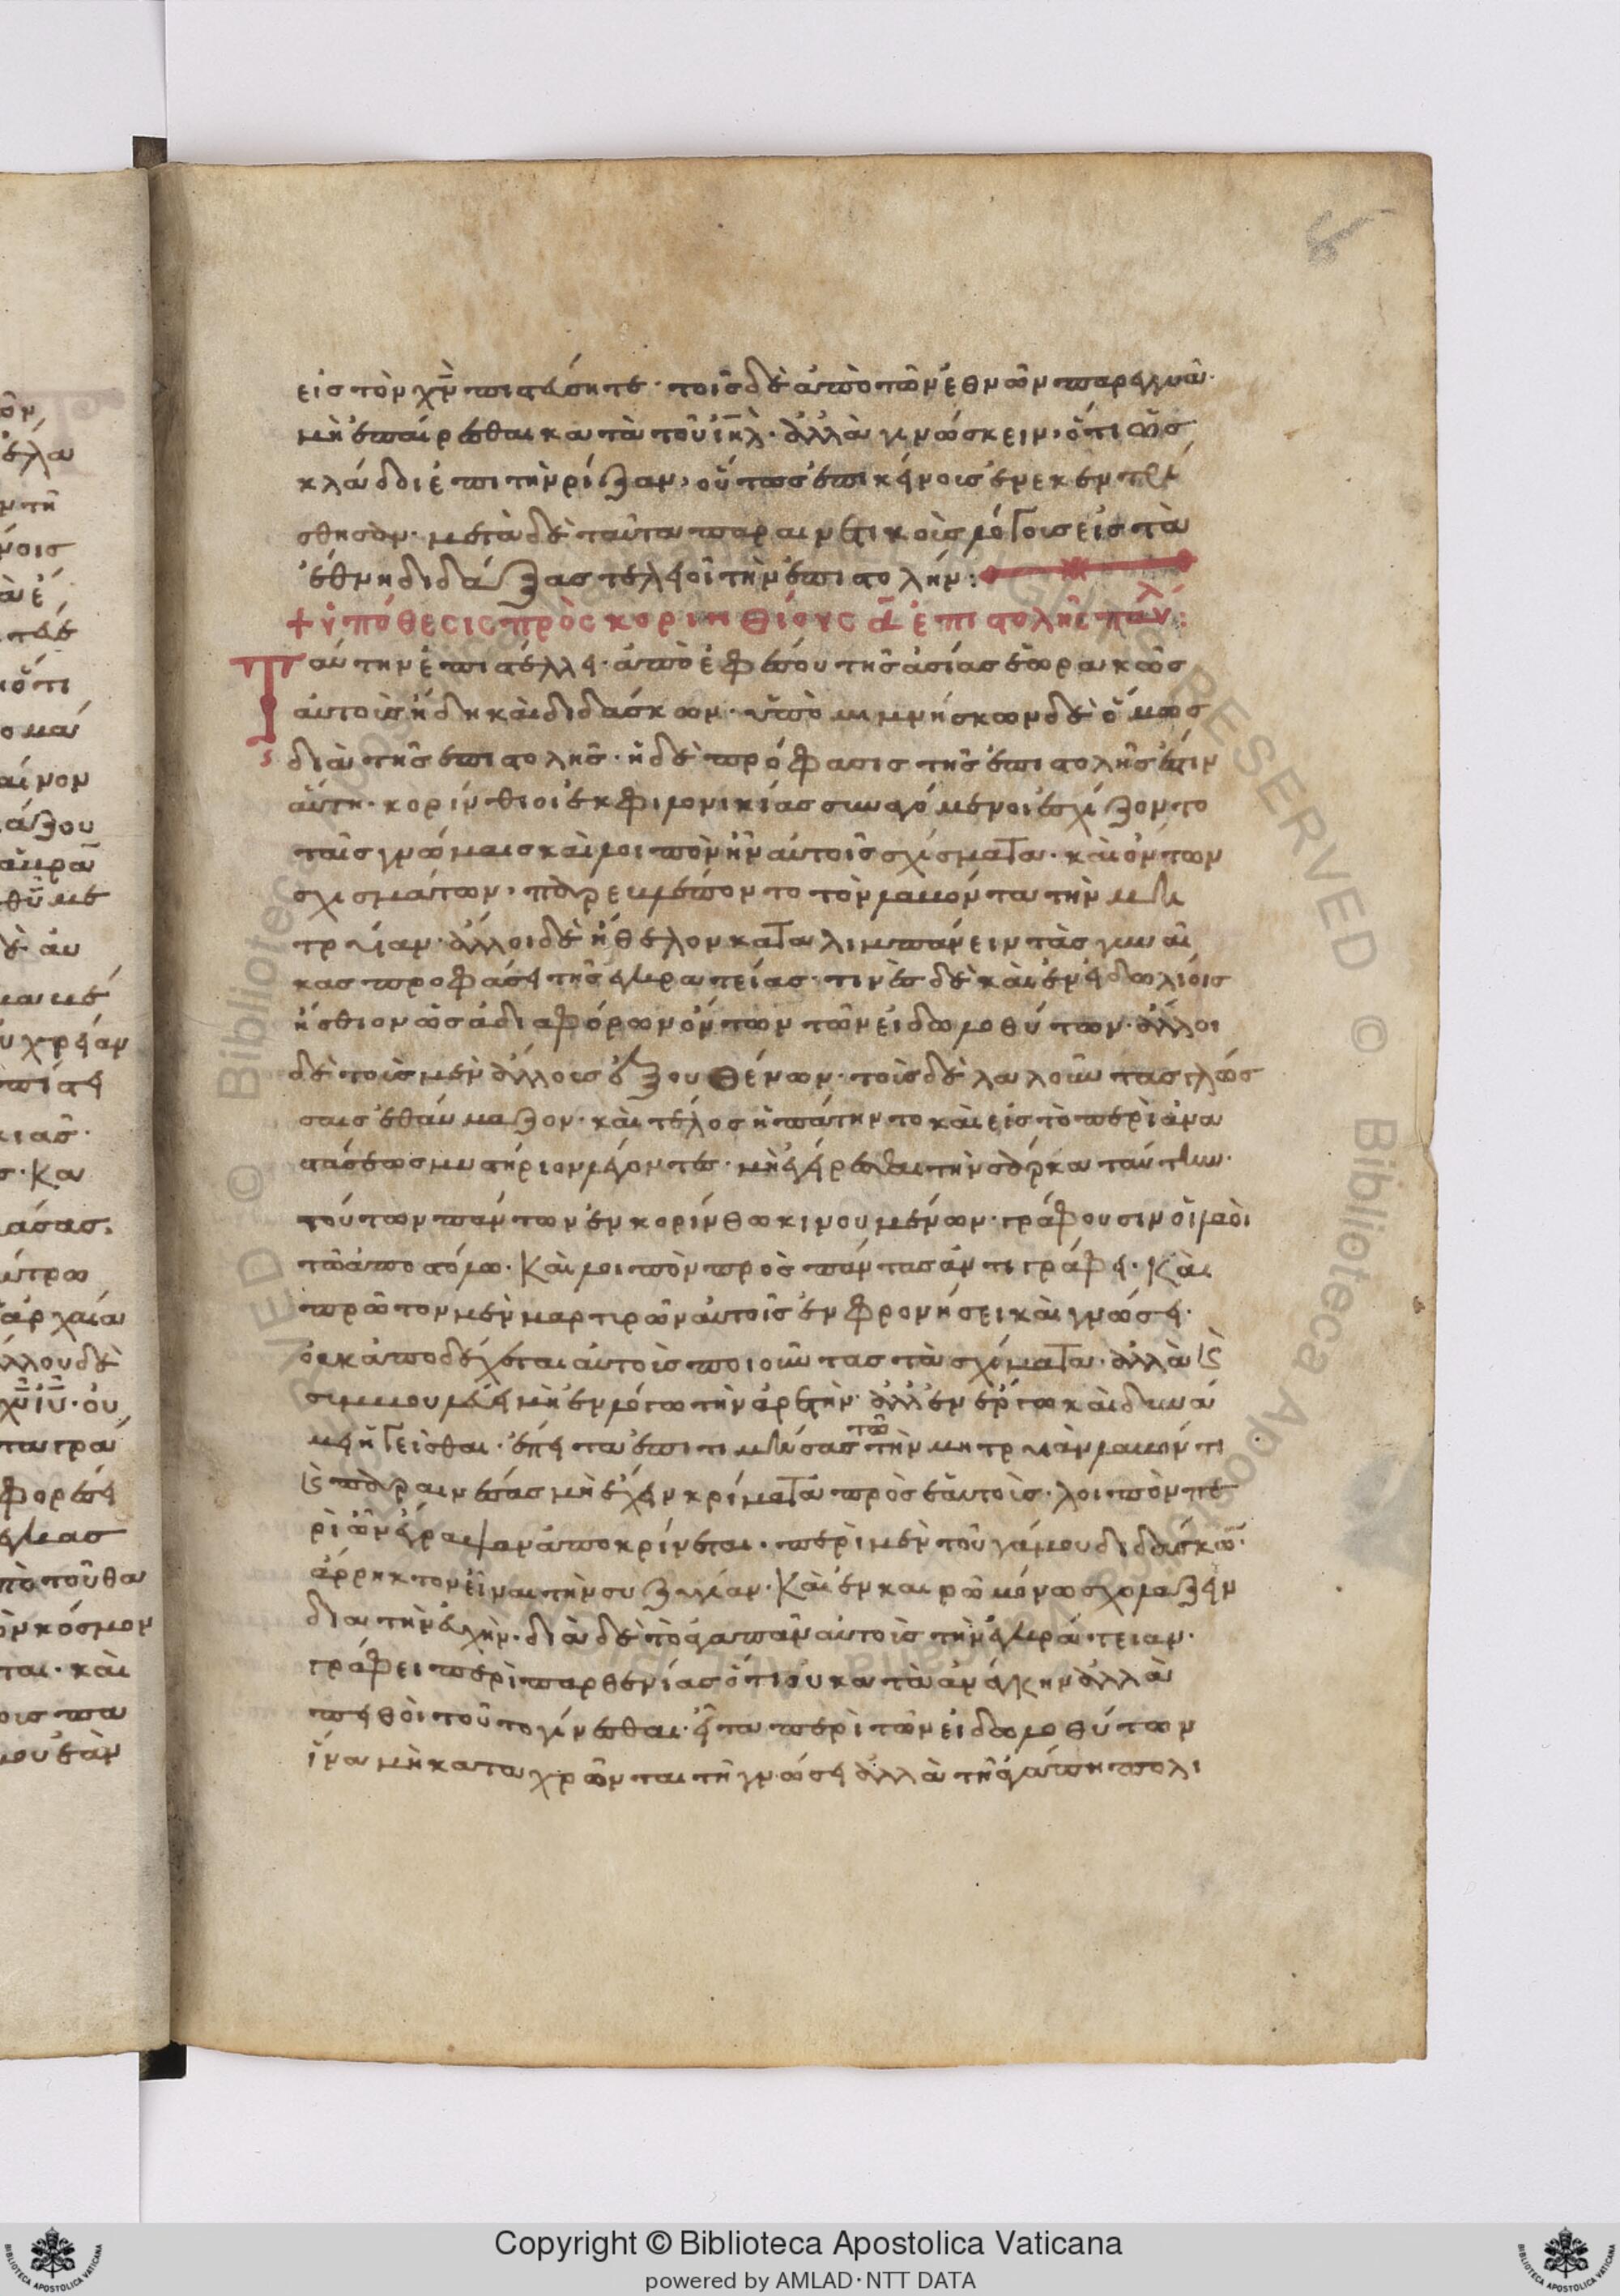 εἰς τὸν χν̅ πιστεύσητε· τοῖς δὲ ἀπὸ τῶν ἐθνῶν παρεγγυᾶ·
μὴ ἐπαίρεσθαι κατὰ τοῦ ἰηλ̅· ἀλλὰ γινώσκειν, ὅτι ὡς
κλάδοι ἐπὶ τὴν ῥίζαν, οὕτως ἐπικείνοις ἐνεκεντρί
σθησαν· μετὰ δὲ ταῦτα παραινετικοῖς λόγοις εἰς τὰ
ἔθνη διδάξας τελειοῖ τὴν ἐπιστολήν:
+ ὑπόθεσις πρὸς κορινθίους α̅ ἐπιστολῆς παύλ:
Ταύτην ἐπιστέλλει· ἀπὸ ἐφέσου τῆς ἀσίας ἑωρακὼς
αὐτοὺς ἤδη καὶ διδάσκων· ὑπομιμνήσκων δὲ ὅμως
διὰ τῆς ἐπιστολῆς· ἡ δὲ πρόφασις τῆς ἐπιστολῆς ἐστιν
αὕτη· κορίνθιοι ἐκ φιλονικίας συναγόμενοι ἐσχίζοντο
ταῖς γνώμαις καὶ λοιπὸν ἦν αὐτοῖς σχίσματα· καὶ ὄντων
σχισμάτων, παρεβλέποντο τὸν λαβόντα τὴν μη
τρυιάν· ἄλλοι δὲ ἤθελον καταλιμπάνειν τὰς γυναῖ
κας προφάσει τῆς ἐγκρατείας· τινὲς δὲ καὶ ἐν εἰδωλίοις
ἤσθιον ὡς ἀδιαφόρων ὄντων τῶν εἰδωλοθύτων· ἄλλοι
δὲ τοὺς μὲν ἄλλους ἐξουθένων· τοὺς δὲ λαλοῦντας γλώσ
σαις ἐθαύμαζον· καὶ τέλος ἠπάτηντο καὶ εἰς τὸ περὶ ἀνα
στάσεως μυστήριον λέγοντες· μὴ ἐγείρεσθαι τὴν σάρκα ταύτην·
τούτων πάντων ἐν κορίνθω κινουμένων· γράφουσιν οἱ λαοὶ
τῶ ἀποστόλω· Καὶ λοιπὸν πρὸς πάντας ἀντιγράφει· Καὶ
πρῶτον μὲν μαρτυρῶν αὐτοῖς ἐν φρονήσει καὶ γνώσει·
οὐκ ἀποδέχεται αὐτοὺς ποιοῦντας τὰ σχίσματα· ἀλλὰ ϗ
συμβουλεύει μὴ ἐν λόγω τὴν ἀρετὴν· ἀλλ' ἐν ἔργω καὶ δυνά
μει ἡγεῖσθαι· ἔπειτα ἐπιτιμήσας τῶ τὴν μητρυιὰν λαβόντι
ϗ παραινέσας μὴ ἔχειν κρίματα πρὸς ἑαυτοὺς· λοιπὸν πε
ρὶ ὧν ἔγραψαν ἀποκρίνεται· περὶ μὲν τοῦ γάμου διδάσκω̅·
ἄρρηκτον εἶναι τὴν συζυγίαν· Καὶ ἐν καιρῶ μόνω σχολάζειν
διὰ τὴν εὐχὴν· διὰ δὲ τὸ ἀγαπᾶν αὐτοὺς τὴν ἐγκράτειαν·
γράφει περὶ παρθενίας ὅτι οὐ κατὰ ἀνάγκην ἀλλὰ
πειθοῖ τοῦτο γίνεσθαι· εἶτα περὶ τῶν εἰδωλοθύτων
ἵνα μὴ καταχρῶνται τῆ γνώσει ἀλλὰ τῆ ἀγάπη πολι
Copyright © Biblioteca Apostolica Vaticana
powered by AMLAD·NTT DATA